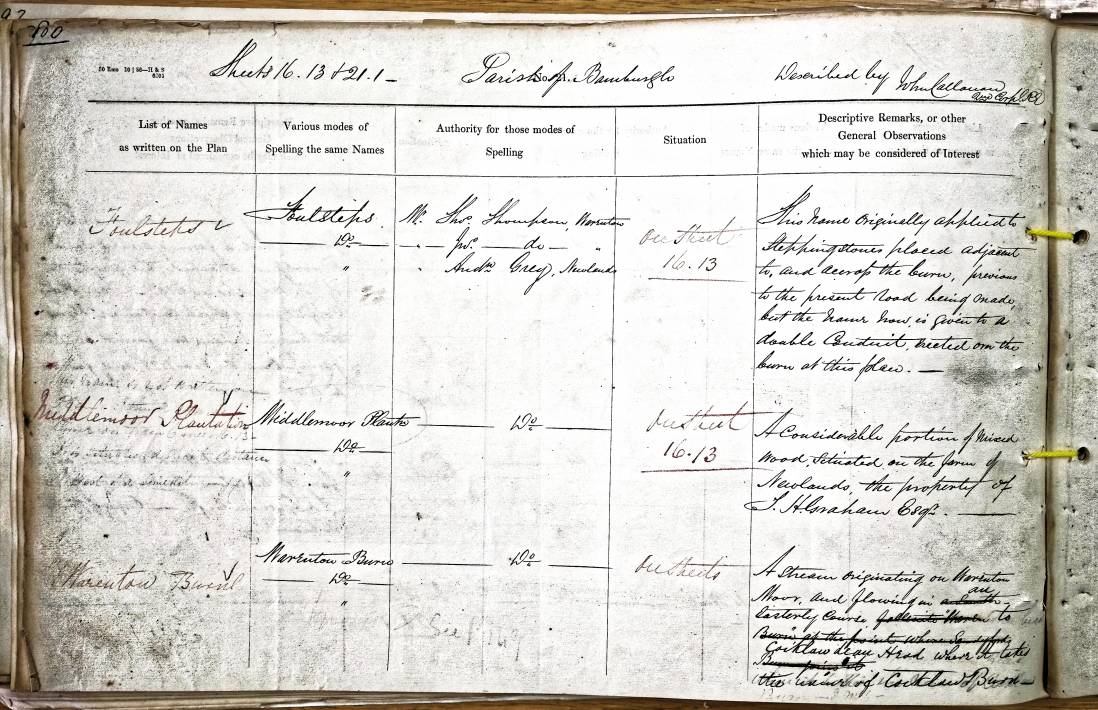 97
100
Sheets 16.13 & 21.1 -
Parish of Bamburgh
Described by John Callanan
Corpl. R.E.
List of Names
as written on the Plan
Various modes of
Spelling the same Names
Authority for those modes of
Spelling
Situation
Descriptive Remarks, or other
General Observations
which may be considered of Interest
Foulsteps
Foulsteps
Do
"
Mr. Thos. Thompson, Warenton
" Jno. — do — "
" Andw. Grey, Newlands
on Sheet
16.13
This name originally applied to
Stepping stones placed adjacent
to, and across the burn, previous
to the present road being made,
but the name now is given to a
double Conduit, erected on the
burn at this place. —
Middlemoor Plantation
Middlemoor Plantn
Do
"
Do
on Sheet
16.13
A Considerable portion of Mixed
Wood, Situated on the farm of
Newlands, the property of
T. H. Graham Esqr. —
Warenton Burn
Warenton Burn
Do
"
Do
on Sheets
A Stream originating on Warenton
Moor, and flowing in a South an
Easterly Course to
Burn at the point where
Cocklaw dean Head where it takes
Burn joins it
the name of Cocklaw Burn —